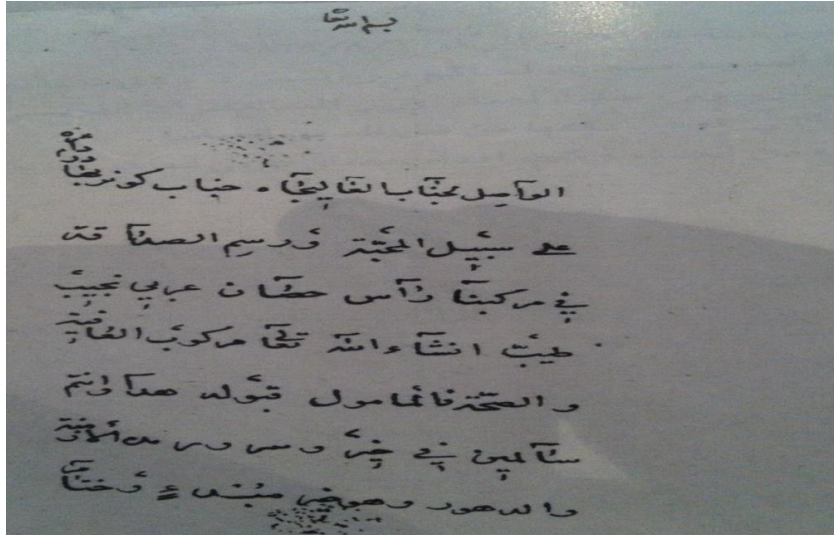 بسم الله تعا
الواصل لجناب العاليجاه جناب كونر بهادر
على سبيل المحبة ورسم الصداقة
في مركبنا رأس حصان عربي نجيب
طيب انشاء الله تعا مركوب العافية
والصحة فالمامول قبوله هذا وانتم
سالمين في خير وسرور مدى
والدهور وهو خير مبتدء وختام